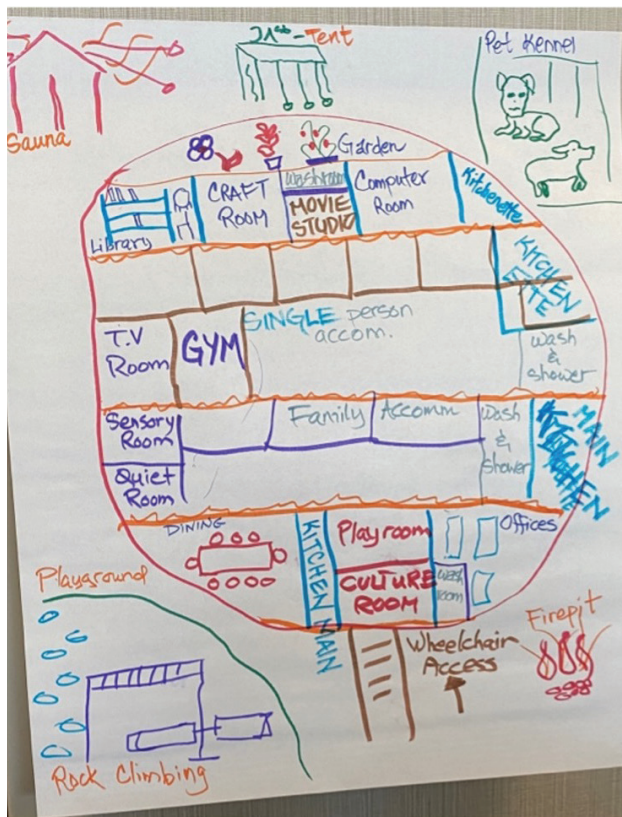 Tent
Pet Kennel
Sauna
Garden
Library
CRAFT
ROOM
Washroom
MOVIE
STUDIO
Computer
Room
Kitchenette
KITCHEN
ETTE
SINGLE person
accom.
T.V
Room
GYM
wash
&
shower
Sensory
Room
Quiet
Room
Family Accomm
Wash
&
shower
MAIN
KITCHEN
DINING
KITCHEN MAIN
Playroom
CULTURE
ROOM
Wash
room
Offices
Playground
Rock Climbing
Wheelchair
Access
Firepit